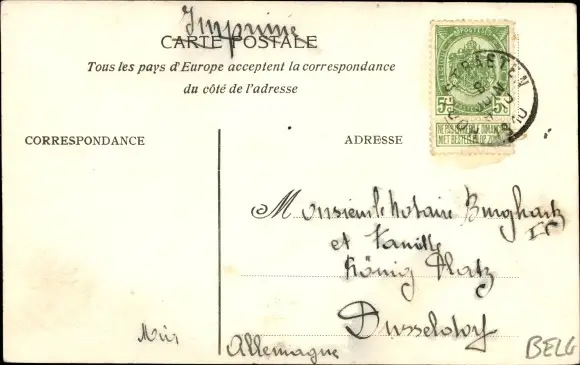 Imprimé
CARTE POSTALE
Tous les pays d'Europe acceptent la correspondance
du côté de l'adresse
POSTES
5c 5c
NE PAS LIVRER LE DIMANCHE
NIET BESTELLEN OP ZONDAG
STRAETEN
CORRESPONDANCE
ADRESSE
Monsieur le Notaire
et Famille
König Platz
Dusseldorf
Allemagne
BELG